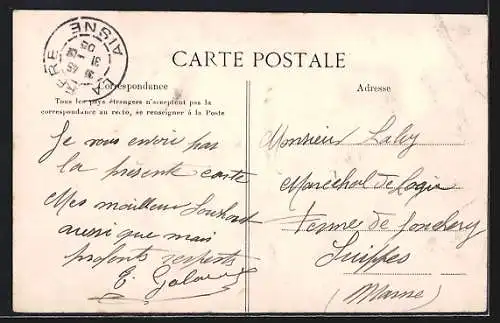 LA FÈRE
AISNE
31
05
CARTE POSTALE
Correspondance
Tous les pays étrangers n'acceptent pas la
correspondance au recto, se renseigner à la Poste
Adresse
Je vous envoie par
la présente carte
Mes meilleurs Souhaits
aussi que mais
profonts respects
E.
Monsieur Laby
Maréchal de Logis
Ferme de Jonchery
Suippes
(Marne)